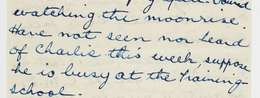 watching the moonrise.
Have not seen nor heard
of Charlie this week, suppose
he is busy at the Training-
school.